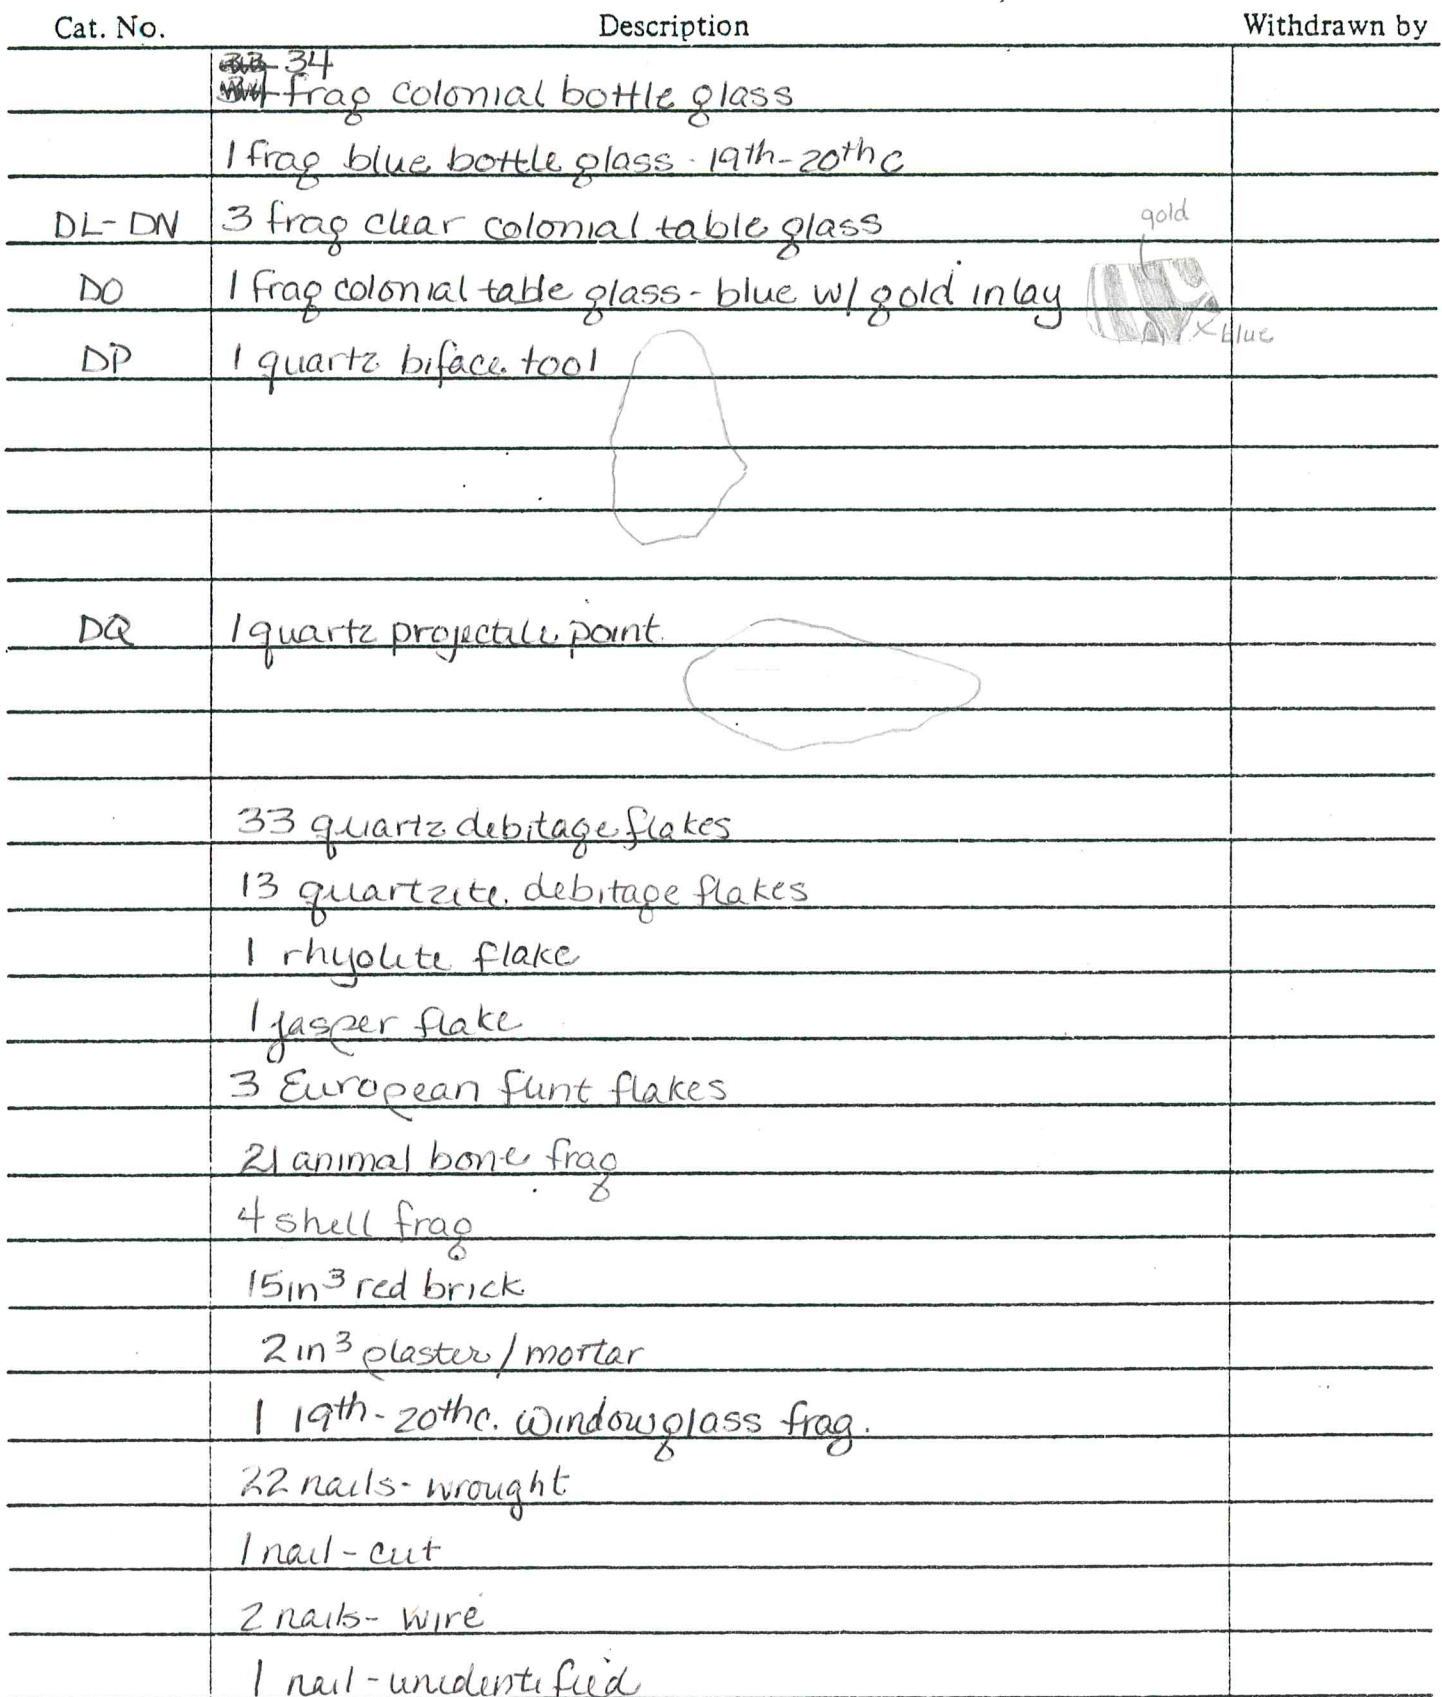 Cat. No. Description Withdrawn by
34
frag colonial bottle glass
1 frag blue bottle glass - 19th-20th c
DL-DN 3 frag clear colonial table glass
gold
DO 1 frag colonial table glass - blue w/ gold inlay
blue
DP 1 quartz biface tool
DQ 1 quartz projectile point
33 quartz debitage flakes
13 quartzite debitage flakes
1 rhyolite flake
1 jasper flake
3 European flint flakes
21 animal bone frag
4 shell frag
15in³ red brick
2in³ plaster/mortar
1 19th-20thc. window glass frag.
22 nails- wrought
1 nail - cut
2 nails- wire
1 nail - unidentified